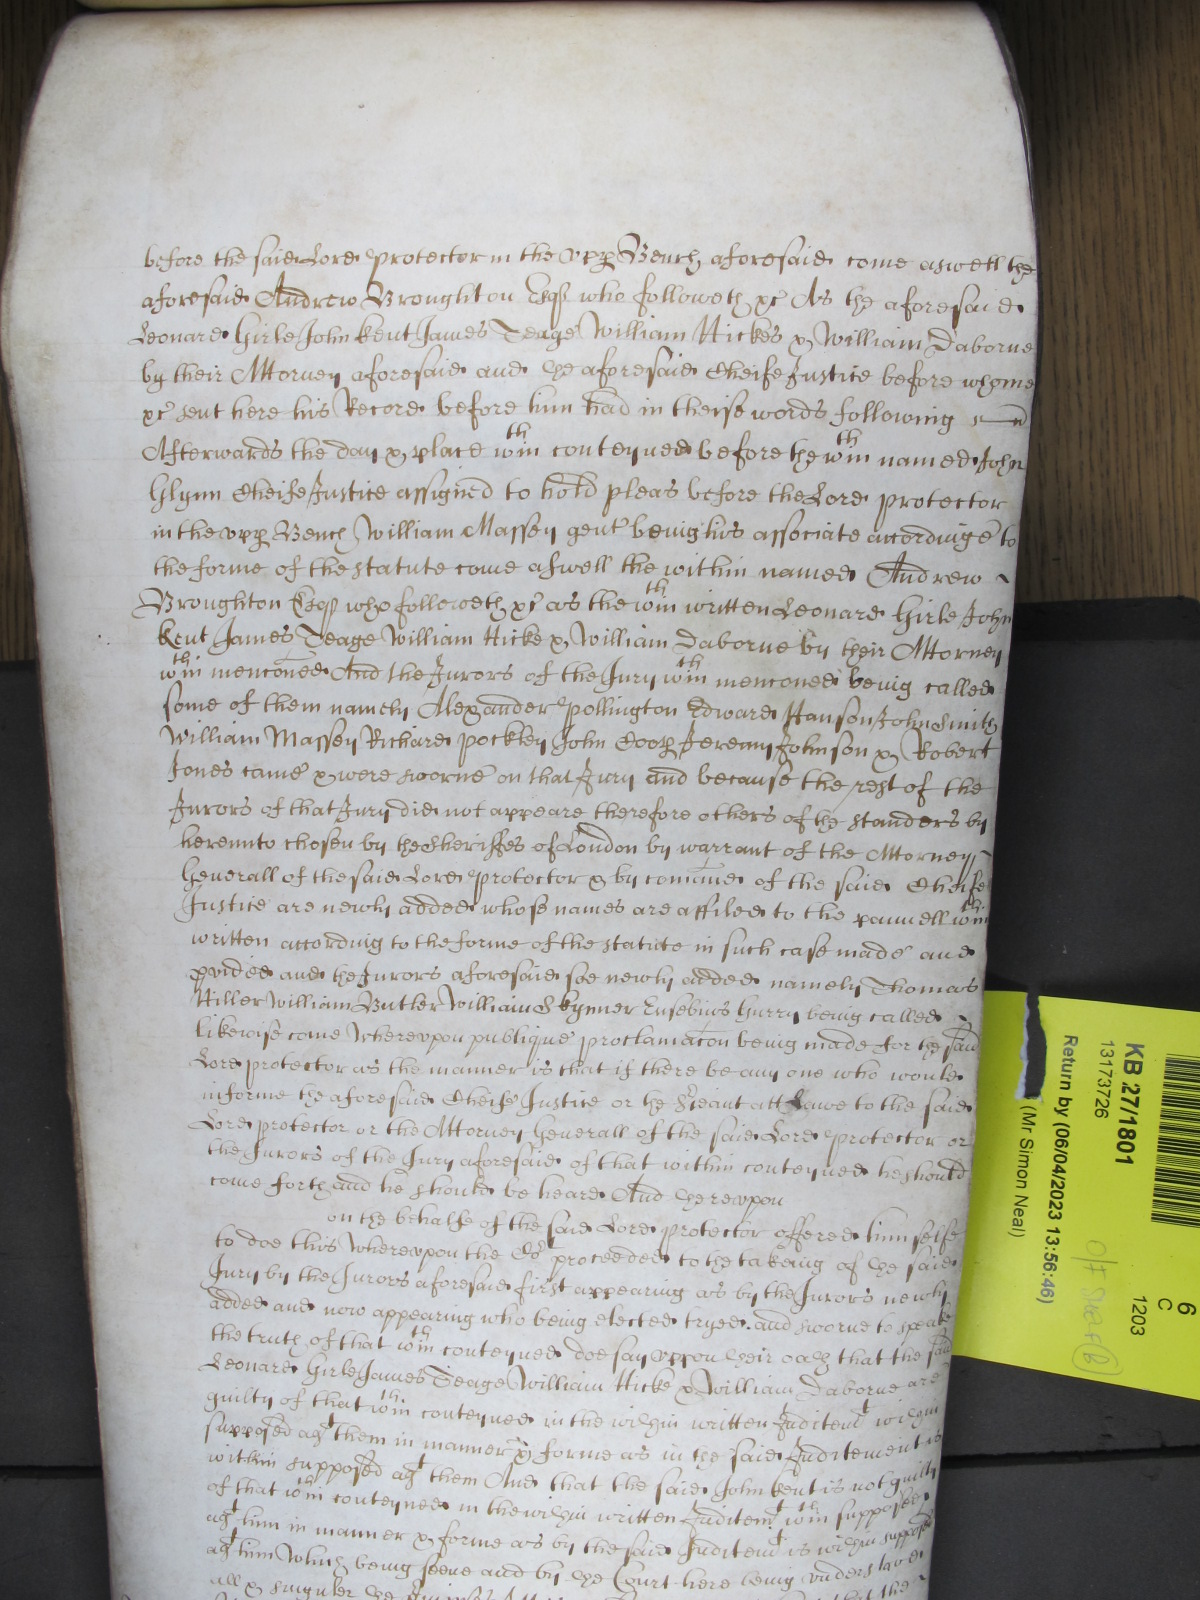 before the said Lord Protector in the upp Bench aforesaid come aswell the
aforesaid Andrew Broughton Esqr who followeth &c As the aforesaid
Leonard Girle John Kent James Teage William Hickes & William Daborne
by their Attorney aforesaid and the aforesaid Cheife Justice before whome
&c sent here his Record before him had in theise words following
Afterwards the day & place wthin conteyned before the wthin named John
Glynn Cheife Justice assigned to hold pleas before the Lord Protector
in the upp Bench William Massey gent being his associate accordinge to
the forme of the statute come aswell the within named Andrew
Broughton Esqr who followeth &c as the wthin written Leonard Girle John
Kent James Teage William Hicke & William Daborne by their Attorney
wthin menconed And the Jurors of the Jury wthin menconed being called
some of them namely Alexander Pollington Edward Hanson John Smith
William Massey Richard Pockley John Coop Jeremy Johnson & Robert
Jones came & were sworne on that Jury and because the rest of the
Jurors of that Jury did not appeare therefore others of the standers by
hereunto chosen by the Sheriffes of London by warrant of the Attorney
Generall of the said Lord Protector & by comaund of the said Cheife
Justice are newly added whose names are affiled to the pannell wthin
written according to the forme of the statute in such case made and
pvided and the Jurors aforesaid soe newly added namely Thomas
Hiller William Butler William Skynner Eusebius Hurry being called
likewise come Whereupon publique proclamacon being made for the said
Lord Protector as the manner is that if there be any one who would
informe the aforesaid Cheife Justice or the Sriant att Lawe to the said
Lord Protector or the Attorney Generall of the said Lord Protector or
the Jurors of the Jury aforesaid of that within conteyned he should
come forth and he should be heard And thereupon
on the behalfe of the said Lord Protector offered him selfe
to doe this Whereupon the Cort proceeded to the takeing of the said
Jury by the Jurors aforesaid first appearing as by the Jurors newly
added and now appearing who being elected tryed and sworne to speake
the truth of that wthin conteyned doe say uppon their oath that the said
Leonard Girle James Teage William Hicke & William Daborne are
guilty of that wthin conteyned in the within written Inditemt within
supposed agt them in manner & forme as in the said Inditement is
within supposed agt them And that the said John Kent is not guilty
of that wthin conteyned in the within written Inditemt wthin supposed
agt him in manner & forme as by the said Inditemt is within supposed
agt him Which being seene and by the Court here being understood
all & singuler the
KB 27/1801
13173726
Return by (06/04/2023 13:56:46)
(Mr Simon Neal)
6
C
1203